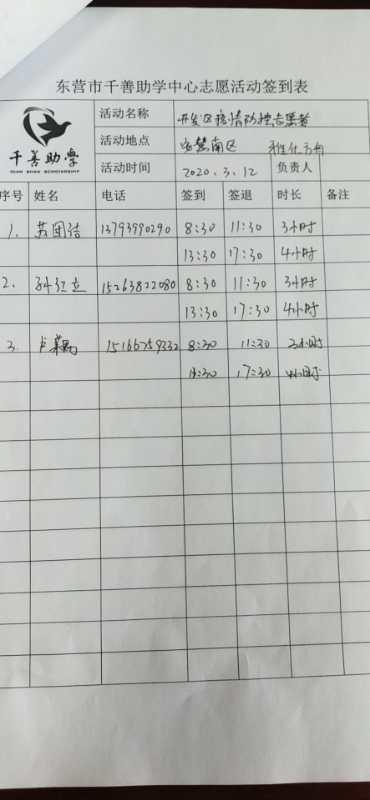 东营市千善助学中心志愿活动签到表
千善助学
QIAN SHAN SCHOLARSHIP
活动名称 开发区疫情防控志愿者
活动地点 安慧南区
活动时间 2020.3.12 负责人
序号 姓名 电话 签到 签退 时长 备注
1. 苏团结 13793990290 8:30 11:30 3小时
13:30 17:30 4小时
2. 孙红立 15263822080 8:30 11:30 3小时
13:30 17:30 4小时
3. 卢 15166759332 8:30 11:30 3小时
17:30 4小时